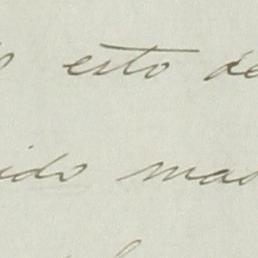 esto de
ido mas